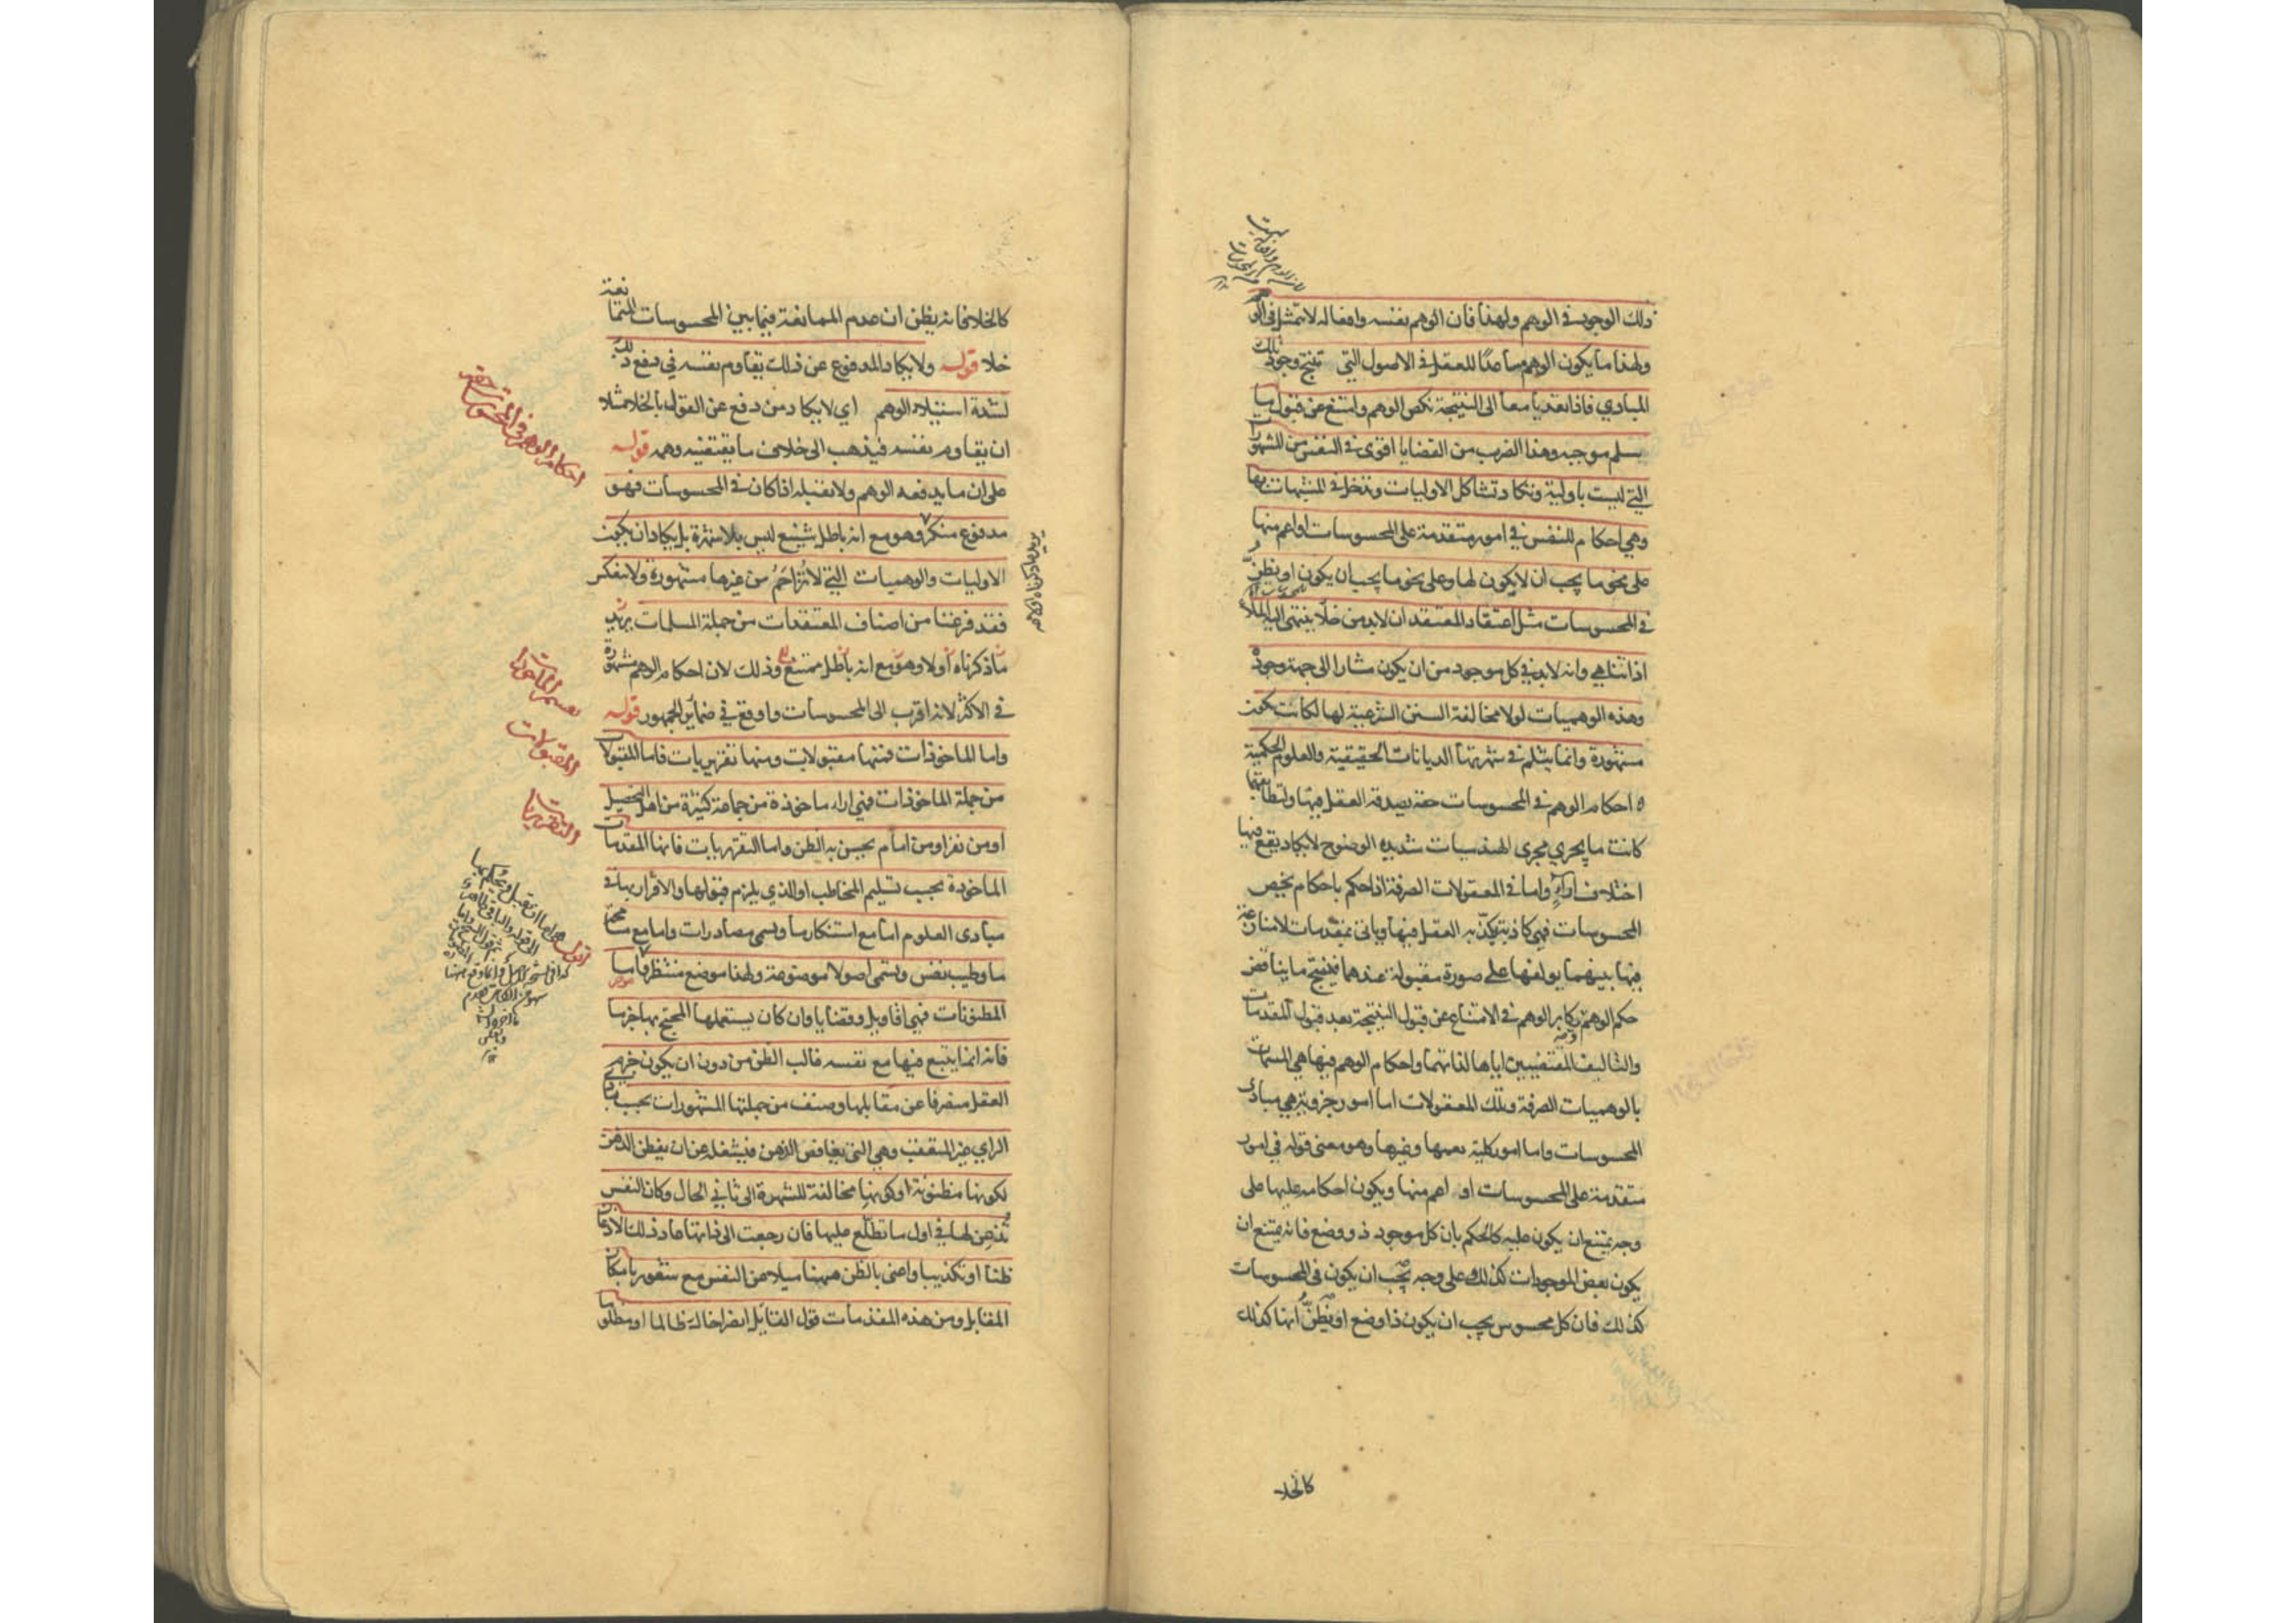 ذلك الوجود في الوهم ولهذا فان الوهم نفسه وافعاله لا تتمثل في الوهم
ولهذا ما يكون الوهم مساعدا للعقل في الاصول التي تنتج وجود تلك
المبادي فاذا تعديا معا الى النتيجة نكص الوهم وامتنع عن قبول ما
سلم موجبه وهذا الضرب من القضايا اقوى في النفس من المشهورات
التي ليست باولية وتكاد تشاكل الاوليات وتدخل في المشبهات بها
وهي احكام للنفس في امور متقدمة على المحسوسات او اعم منها
على نحو ما يجب ان لا يكون لها وعلى نحو ما يجب ان يكون او يظن
في المحسوسات مثل اعتقاد المعتقد ان لا بد من خلا ينتهي اليه الملا
اذا تناهي وانه لا بد في كل موجود من ان يكون مشارا الى جهة وجوده
وهذه الوهميات لولا مخالفة السنن الشرعية لها لكانت تكون
مشهورة وانما يثلم في شهرتها الديانات الحقيقية والعلوم الحكمية
ه احكام الوهم في المحسوسات حقة يصدقه العقل فيها ولتطابقهما
كانت ما يجري مجرى الهندسيات شديده الوضوح لا يكاد يقع فيها
اختلاف اراء واما في المعقولات الصرفة اذا حكم باحكام يخص
المحسوسات فهي كاذبة يكذبه العقل فيها وياتى بمقدمات لا منازعة
فيها بينهما يولفها على صورة مقبولة عندهما فينتج ما يناقض
حكم الوهم يكابر الوهم في الامتناع عن قبول النتيجة بعد قبول المقدمات
والتاليف المقتضيين اياها لذاتهما واحكام الوهم فيها هي المسمات
بالوهميات الصرفة وتلك المعقولات اما امور جزوية هي مبادى
المحسوسات واما امور كلية تعمها وغيرها وهو معنى قوله في امور
متقدمة على المحسوسات او اعم منها ويكون احكامه عليها على
وجه يمتنع ان يكون عليه كالحكم بان كل موجود ذو وضع فانه يمتنع ان
يكون بعض الموجودات كذلك وعلى وجه يجب ان يكون في المحسوسات
كذلك فان كل محسوس يجب ان يكون ذا وضع او يظن انها كذلك
كالخلا
كالخلا فانه يظن ان عدم الممانعة فيما بين المحسوسات المتمانعة
خلا قوله ولا يكاد المدفوع عن ذلك يقاوم نفسه في دفع ذلك
لشدة استيلاء الوهم اي لا يكاد من دفع عن القول بالخلا مثلا
ان يقاوم نفسه فيذهب الى خلاف ما يقتضيه وهمه قوله
على ان ما يدفعه الوهم ولا يقبله اذا كان في المحسوسات فهو
مدفوع منكر وهو مع انه باطل شنيع ليس بلا شهرة بل يكاد ان يكون
الاوليات والوهميات التي لا تزاحم من غيرها مشهورة ولا ينعكس
فقد فرغنا من اصناف المعتقدات من جملة المسلمات يريد
ما ذكرناه اولا وهو مع انه باطل ممتنع وذلك لان احكام الوهم مشهورة
في الاكثر لانه اقرب الى المحسوسات واوقع في ضمائر الجمهور قوله
واما الماخوذات فمنها مقبولات ومنها تقريريات فاما المقبولات
من جملة الماخوذات فهي اراء ماخوذة من جماعة كثيرة من اهل التحصيل
او من نفر او من امام يحسن به الظن واما التقريريات فانها المقدمات
الماخوذة بحسب تسليم المخاطب او الذي يلزم قبولها والاقرار بها في
مبادى العلوم اما مع استنكار ما وتسمى مصادرات واما مع مسامحة
ما وطيب نفس وتسمى اصولا موضوعة ولهذا موضع منتظر فاما
المظنونات فهي اقاويل وقضايا وان كان يستعملها المحتج بها جزما
فانه انما يتبع فيها مع نفسه غالب الظن من دون ان يكون جزم
العقل منصرفا عن مقابلها وصنف من جملتها المشهورات بحسب بادي
الراي غير المتعقب وهي التي يغافص الذهن فيشغله عن ان يفطن الذهن
لكونها مظنونة او كونها مخالفة للشهرة الى ثاني الحال وكان النفس
تذعن لها في اول ما تطلع عليها فان رجعت الى ذاتها عاد ذلك الاذعان
ظنا او تكذيبا واعنى بالظن ههنا ميلا من النفس مع شعور بامكان
المقابل ومن هذه المقدمات قول القايل انصر اخاك ظالما او مظلوما
يريد ما ذكرناه اولا هو
احكام الوهم في المحسوسات حقة
تقسيم الماخوذات
المقبولات
التقريريات